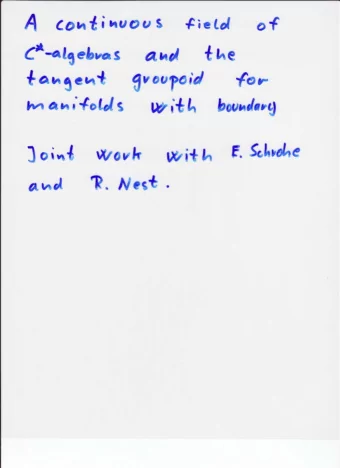 A continuous field of
C*-algebras and the
tangent groupoid for
manifolds with boundary
Joint work with E. Schrohe
and R. Nest.